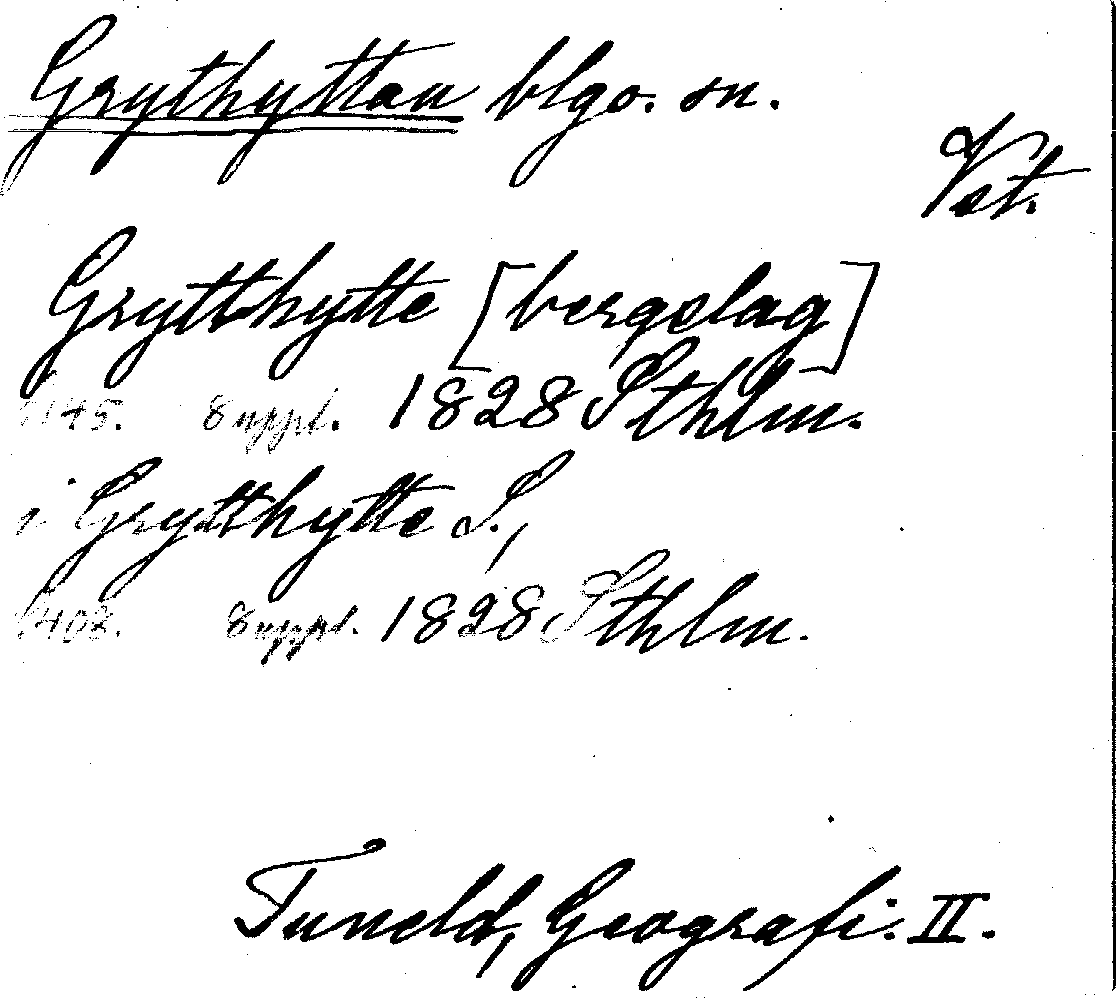 Grythyttan blgo. sn.
Vet.
Grytthytte [bergslag]
145. 8 uppl. 1828 Sthlm.
i Grytthytte S.,
403. 8 uppl. 1828 Sthlm.
Tuneld, Geografi. II.